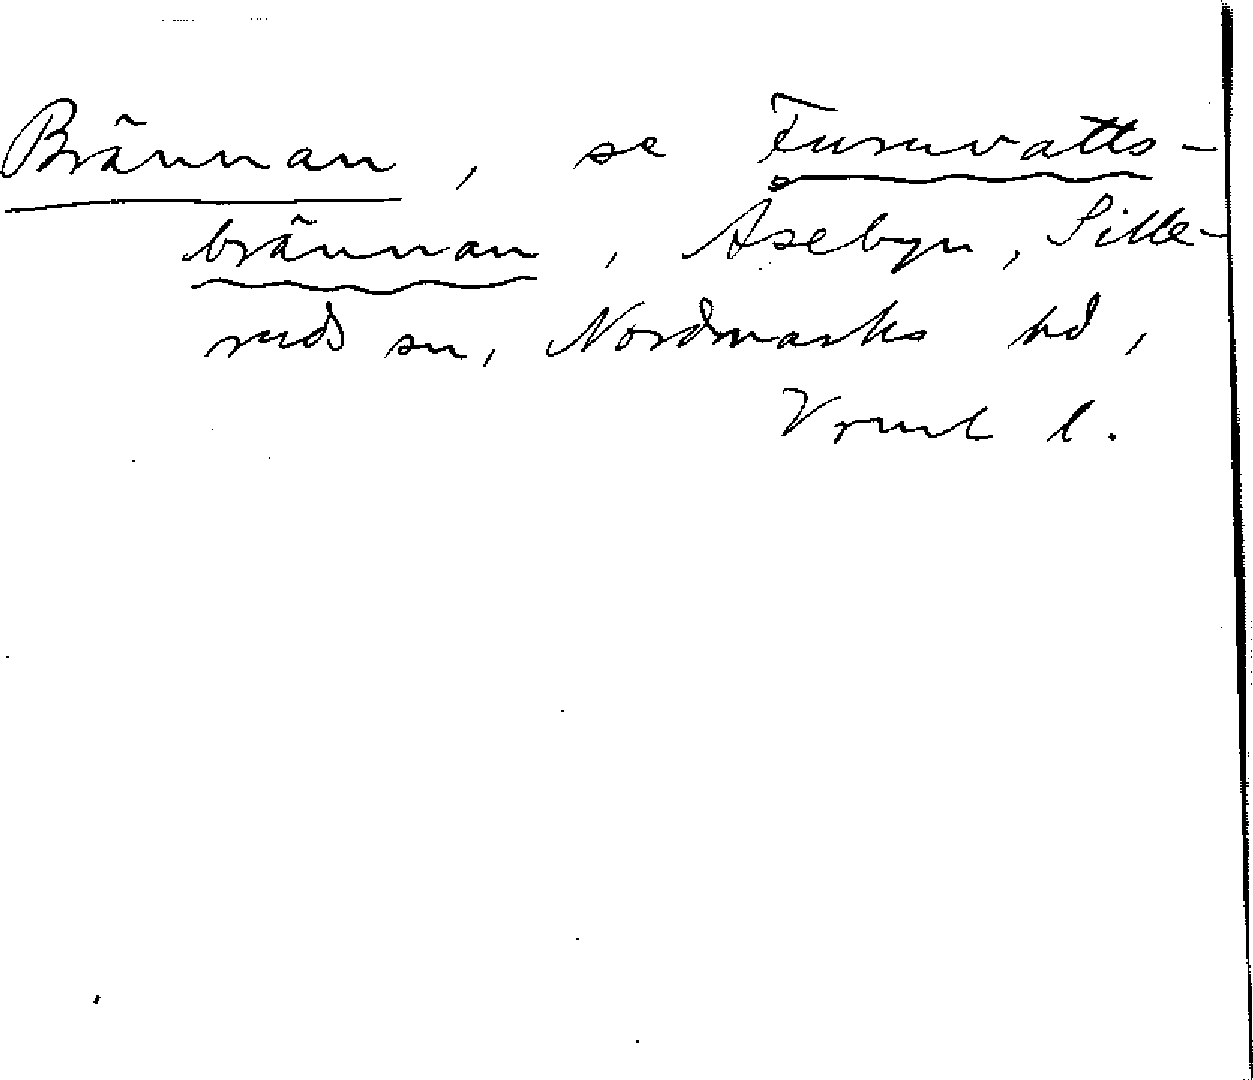 Brännan, se Furuvatts-
brännan, Åsebyn, Sille-
ruds sn, Nordmarks hd,
Vrml l.